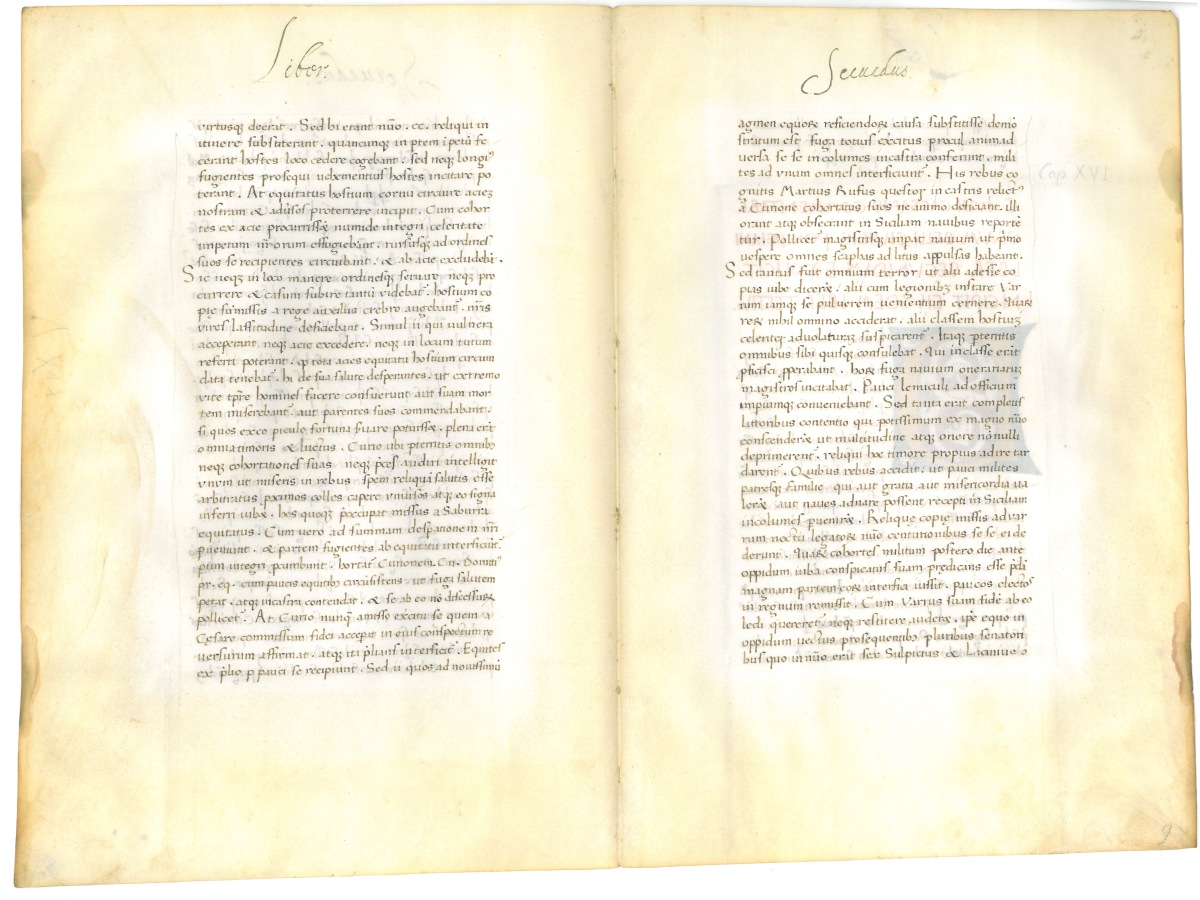 Liber
virtusq; deerat. Sed hi erant nūo. cc. reliqui in
itinere substiterant. quamcunque in ptem īpetū fe
cerant hostes loco cedere cogebant. sed neq; longi᾿
fugientes prosequi uehementius hostes incitare po
terant. At equitatus hostium cornu circuire aciez
nostram & aduīsos proterrere incipit. Cum cohor
tes ex acie procurrissēt numide integri celeritate
impetum nr̄orum effugiebant. rursusq; ad ordines
suos se recipientes circuibant. & ab acie excludebāt.
Sic neq; in loco manere ordinesq; seruare neq; pro
currere & casum subire tantū videbat᾿. hostium co
pie sumissis a rege auxiliis crebro augebant᾿. nr̄is
vires lassitudine deficiebant. Simul ii qui vulnera
acceperant neq; acie excedere. neq; in locum tutum
referri poterant. ꝙ tota acies equitatu hostium circum
data tenebat᾿. hi de sua salute desperantes. ut extremo
vite tp̄re homines facere consuerunt aut suam mor
tem miserebant᾿. aut parentes suos commendabant.
si quos ex eo piculo fortuna suare potuisset. plena erāt
omnia timoris & luctus. Curio ubi pterritis omnibus
neq; cohortationes suas neq; pces audiri intelligit
vnum ut miseris in rebus spem reliquā salutis esse
arbitratus pximos colles capere vniuīsos atq; eo signa
inferri iubet. hos quoq; p̄occupat missus a Saburra
equitatus. Cum vero ad summam despationem nr̄i
pueniunt. & partem fugientes ab equitatu interficiūt᾿.
ptim integri pcumbunt. hortat᾿ Curionem. Cn. Domiti᾿
pr. eq. cum paucis equitibus circūsistens. ut fuga salutem
petat. atq; in castra contendat. & se ab eo nō discessurū
pollicet᾿. At Curio nunq̄ amisso excitu se quem a
Cęsare commissum fidei accepit in eius conspectum re
versurum affirmat. atq; ita plians interficit᾿. Equites
ex plio ꝑpauci se recipiunt. Sed ii quos ad nouissimū
Secundus
agmen equorū reficiendorū causa substitisse demō
stratum est. fuga totius exercitus procul animad
versa se se incolumes in castra conferunt. mili
tes ad vnum omnes interficiunt᾿. His rebus co
gnitis Martius Rufus questor in castris relict᾿
a Curione cohortatus suos ne animo deficiant. illi
orant atq; obsecrant in Siciliam nauibus reportē
tur. Pollicet᾿ magistrisq; impat nauium ut pmo
uespere omnes scaphas ad litus appulsas habeant.
Sed tantus fuit omnium terror ut alii adesse co
pias iube dicerēt. alii cum legionibus instare Var
rum iamq; se puluerem uenientium cernere. quarū
rerū nihil omnino acciderat. alii classem hostiuz
celeriter aduolaturaz suspicarent᾿. Itaq; pterritis
omnibus sibi quisq; consulebat. Qui in classe erāt
pficisci pperabant. horū fuga nauium onerariarū
magistros incitabat. Pauci lenuculi ad officium
impiumq; conueniebant. Sed tanta erat completis
littoribus contentio qui potissimum ex magno nūo
conscenderēt ut multitudine atq; onere nōnulli
deprimerent᾿. reliqui hoc timore propius adire tar
darent᾿. Quibus rebus accidit. ut pauci milites
patresq; familie. qui aut gratia aut misericordia ua
lerēt aut naues adnare possent recepti in Siciliam
incolumes puenirēt. Relique copie missis ad var
rum noctu legatorū nūo centurionibus se se ei de
derunt. Quarū cohortes militum postero die ante
oppidum iuba conspicatus suam prędicans esse pdā
magnam partem eorū interfici iussit. paucos electos
in regnum remissit. Cum Varrus suam fidē ab eo
ledi quereret᾿. neq; resistere auderet. ipe equo in
oppidum uectus prosequentibus pluribus senatori
bus quo in nūo erāt ser. Sulpitius & Licinius
9